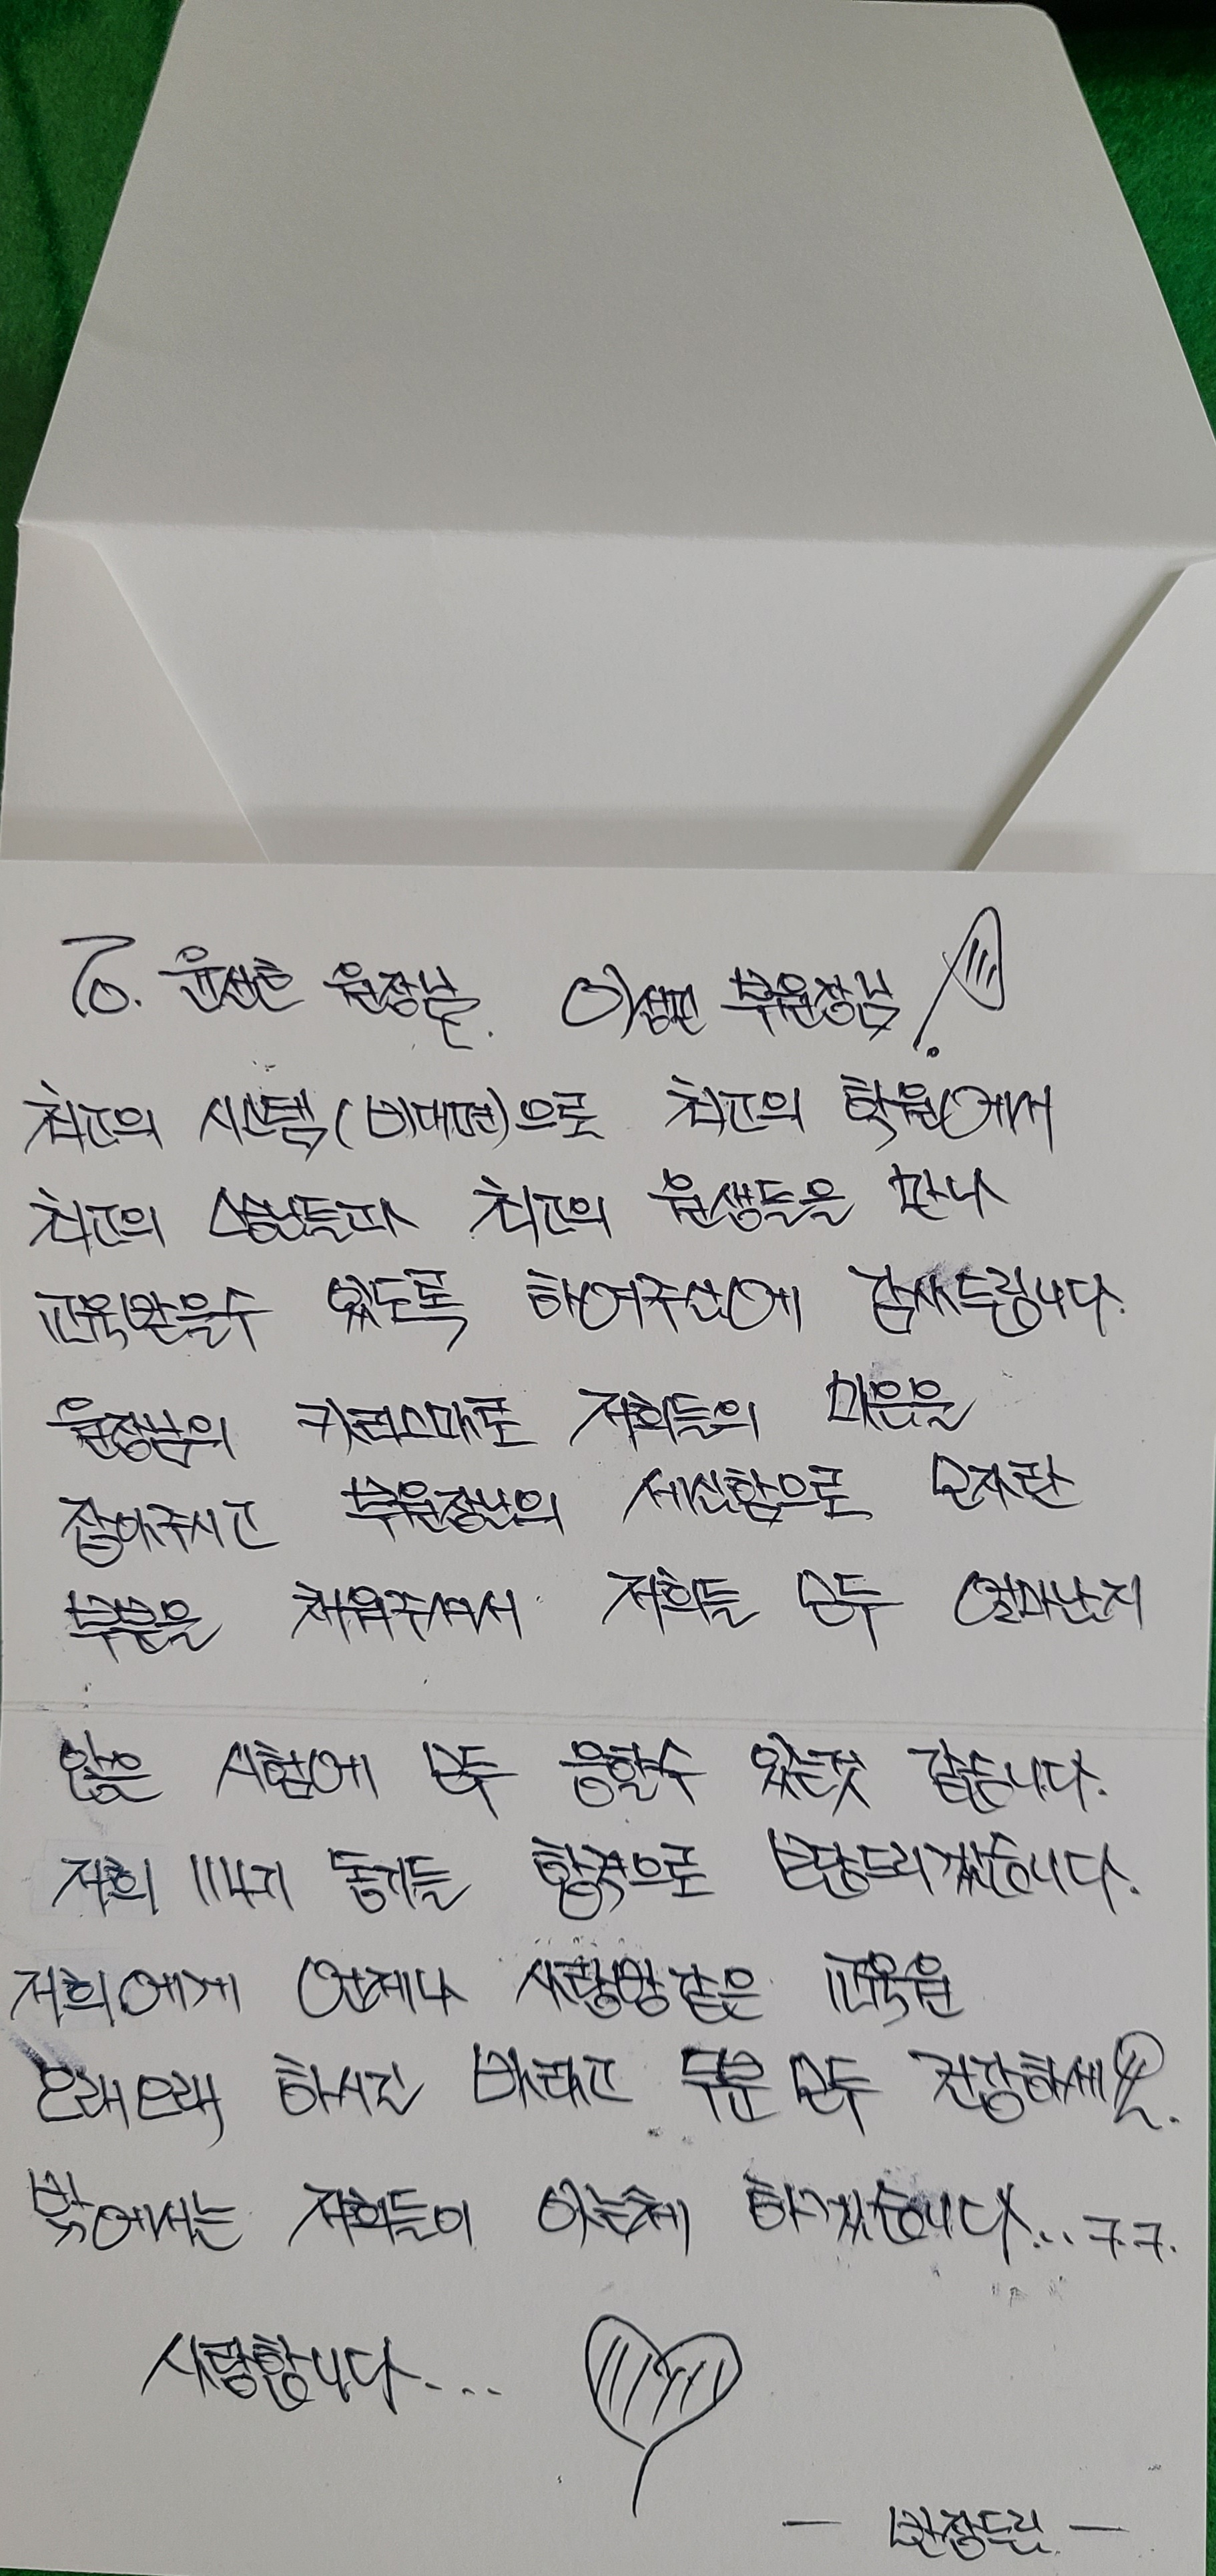 To. 원장님. 부원장님!
최고의 시스템(비대면)으로 최고의 학원에서
최고의 스승님들과 최고의 원생들을 만나
교육받을수 있도록 하여주심에 감사드립니다.
원장님의 카리스마로 저희들의 마음을
잡아주시고 부원장님의 세심함으로 모자란
부분을 채워주셔서 저희들 모두 얼마남지
않은 시험에 모두 응할수 있는것 같습니다.
저희 114기 동기들 합격으로 보답드리겠습니다.
저희에게 언제나 사랑방같은 교육원
오래오래 하시길 바라고 두분 모두 건강하세요.
밖에서는 저희들이 아는체 하겠습니다...ㅋㅋ.
사랑합니다...
— 반장드림. —